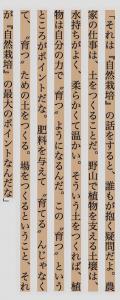 「それは〝自然栽培〟の話をすると、誰もが抱く疑問だよ。農
家の仕事は、土をつくることだ。野山で植物を支える土壌は、
水持ちがよく、柔らかくて温かい。そういう土をつくれば、植
物は自分の力で〝育つ〟ようになるんだ。この〝育つ〟という
ところがポイントだな。肥料を与えて〝育てる〟んじゃなく
て、〝育つ〟ための土をつくる、場をつくるということ、それ
が〝自然栽培〟の最大のポイントなんだな」